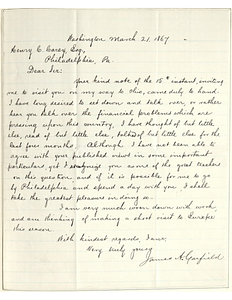 Washington March 21. 1867
Henry C. Carey Esq.
Philadelphia, Pa.
Dear Sir:
Your kind note of the 15th instant, inviting
me to visit you on my way to Ohio, came duly to hand.
I have long desired to sit down and talk over, or rather
hear you talk over the financial problems which are
pressing upon this country. I have thought of but little
else, read of but little else, talked of but little else for the
last four months. Although I have not been able to
agree with your published views in some important
particulars, yet I recognize you as one of the great teachers
on this question and if it is possible for me to go
by Philadelphia and spend a day with you I shall
take the greatest pleasure in doing so.
I am very much worn down with work
and am thinking of making a short visit to Europe
this season.
With kindest regards, I am,
Very truly yours
James A. Garfield